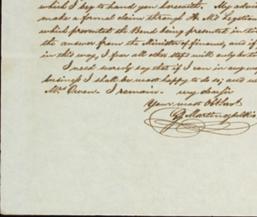 which I beg to hand you herewith. My advice
make a formal claim through the
which prevented the Bond being presented in ti
the answer from the Minister of finance, and if
in this way, I fear all other steps will only be
I need scarcely say that if I can in any
business I shall be most happy to do so; and
Mrs Owen. I remain. my dear Sir
Your most Obt